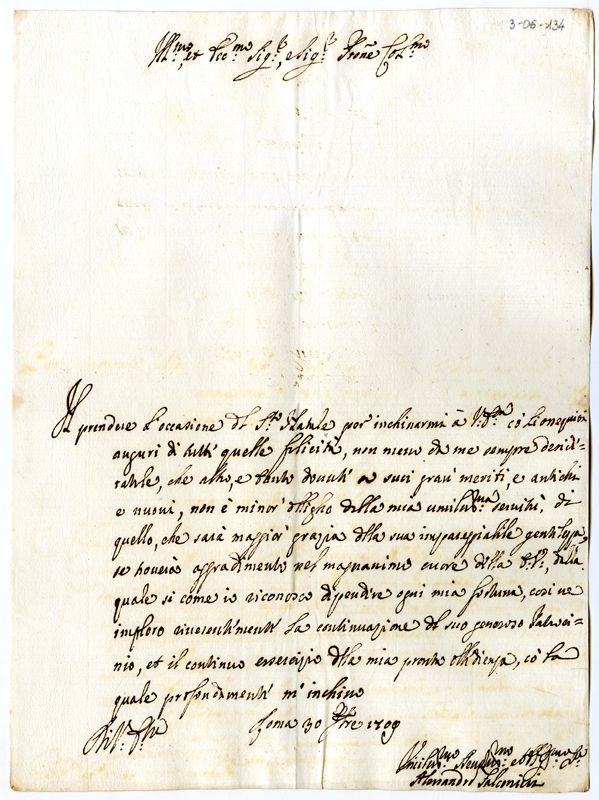 3-06-134
Ill.mo et Ecc.mo Sig.r, e Sig.r Prone Col.mo
Il prendere l'occasione del S.to Natale per inchinarmi à V.E. co' li ossequiosi
auguri di tutte quelle felicità, non meno da me sempre deside=
rabile, che alte, e tanto dovute a suoi gravi meriti, e antichi
e nuovi, non è minor obligho della mia umiliss.ma servitù, di
quello, che sarà maggior grazia della sua impareggiabile gentilezza,
se troverà aggradimento nel magnanimo cuore della E.V. dalla
quale si come io riconosco dipendere ogni mia fortuna, così ne
imploro riverentemente la continuazione del suo generoso Patroci=
nio, et il continuo esercizio della mia pronta obbidienza, co' la
quale profondamente m'inchino
Roma 30 Xbre 1709
Alessandro